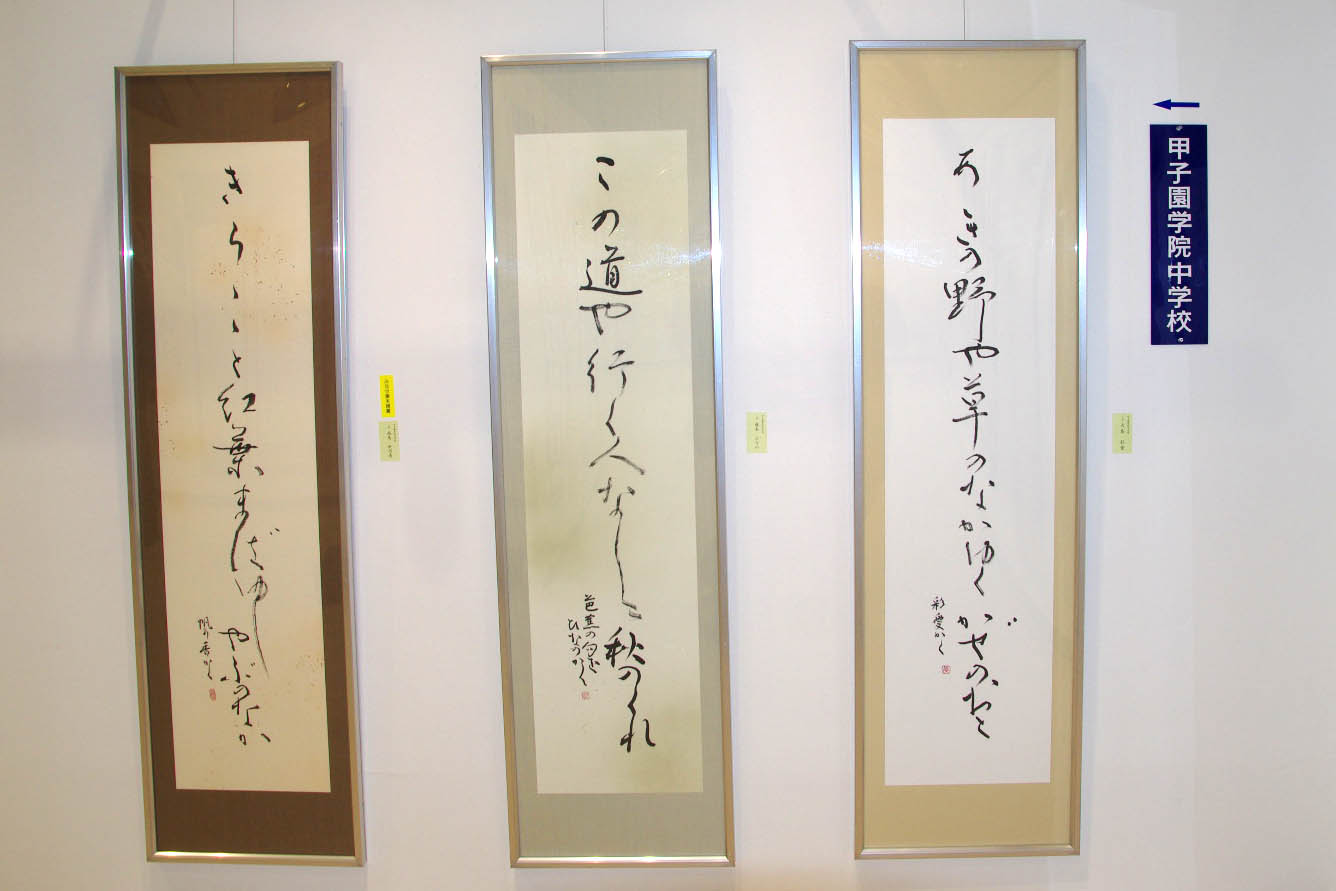 甲子園学院中学校
あきの野や草のなかゆく
かぜのおと
彩愛かく
この道や行く人なしに
秋のくれ
芭蕉の句を
ひなのかく
きらゝゝと紅葉まばゆし
やぶのなか